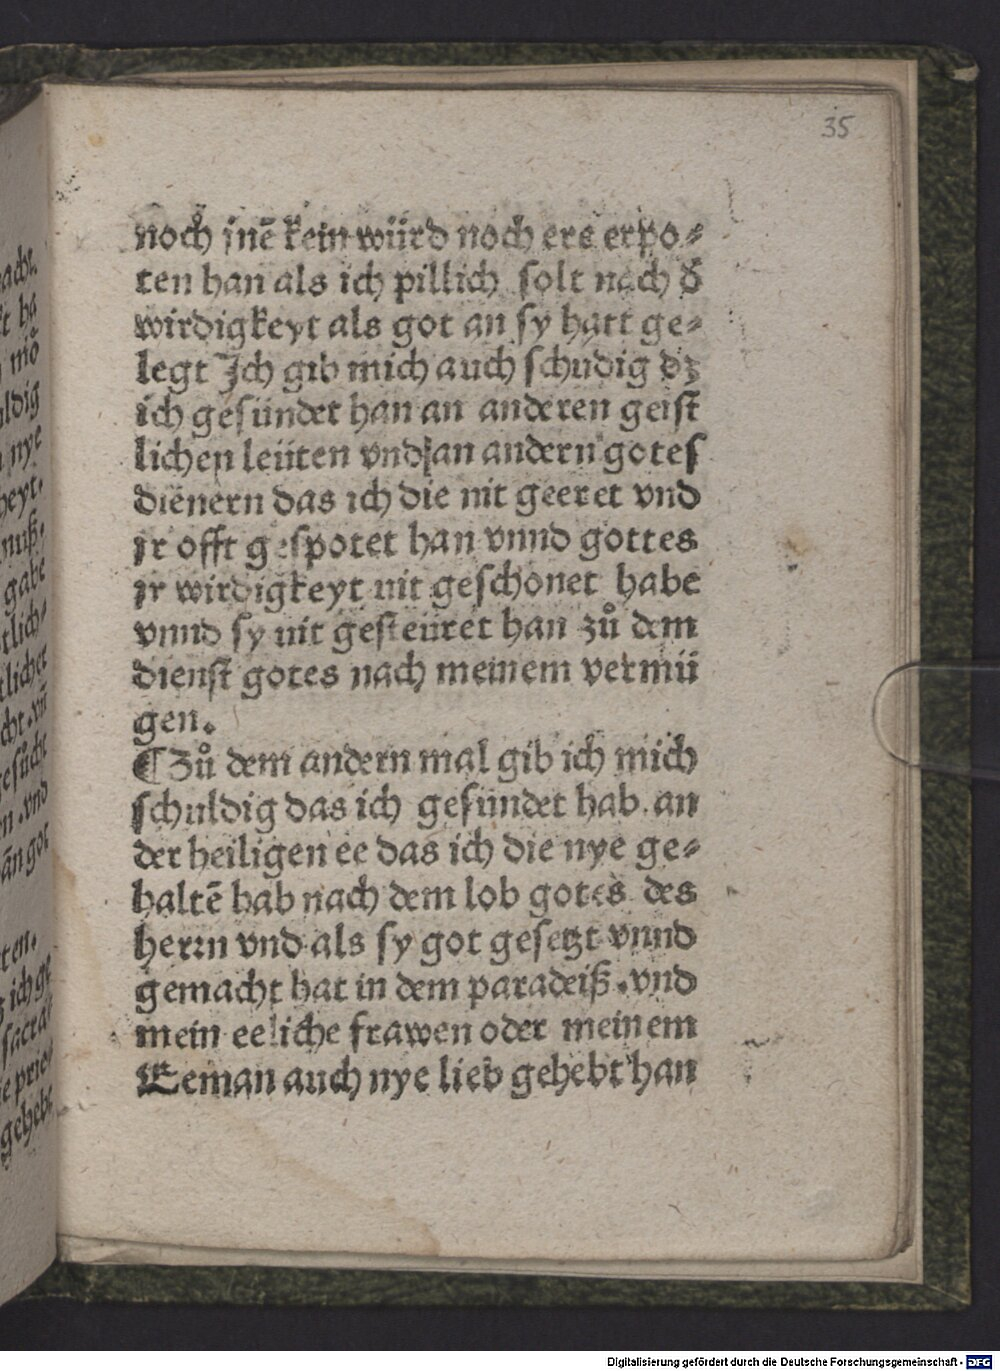 35
noch jnē kein würd noch ere erpo⸗
ten han als ich pillich solt nach d̄
wirdigkeyt als got an sy hatt ge⸗
legt Jch gib mich auch schudig dz
ich gesündet han an anderen geist
lichen leüten vnd an andern gotes
dienern das ich die nit geeret vnd
jr offt gespotet han vnnd gottes
jr wirdigkeyt nit geschonet habe
vnnd sy nit gesteüret han zů dem
dienst gotes nach meinem vermü
gen.
¶ Zů dem andern mal gib ich mich
schuldig das ich gesündet hab an
der heiligen ee das ich die nye ge⸗
haltē hab nach dem lob gotes des
herrn vnd als sy got gesetzt vnnd
gemacht hat in dem paradeiß. vnd
mein eeliche frawen oder meinem
Eeman auch nye lieb gehebt han
Digitalisierung gefördert durch die Deutsche Forschungsgemeinschaft - DFG